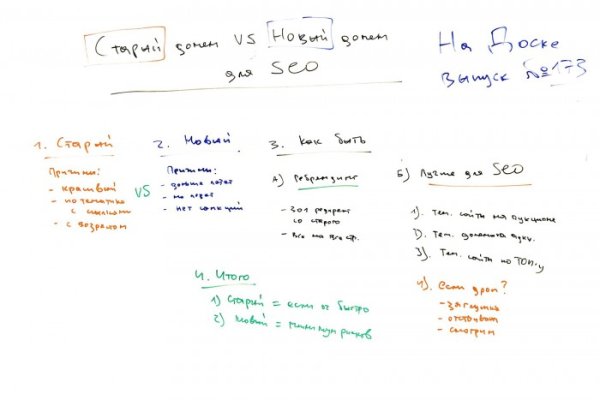 Старый домен VS Новый домен
для SEO
На Доске
выпуск №173
1. Старый
Причины:
- красивый
- по тематике
с ссылками
- с возрастом
VS
2. Новый
Причины:
- дольше
- нет санкций
3. Как быть
А) Ребрендинг
- 301 редирект
со старого
- Все на все стр.
Б) Лучше для SEO
1). Тем. сайты на аукционе
2). Тем. домены аукц.
3). Тем. сайты по ТОП-у
4). Если дроп?
- заглушка
- отстаивать
- смотрим
4. Итого
1) Старый = если оч быстро
2) Новый = минимум рисков